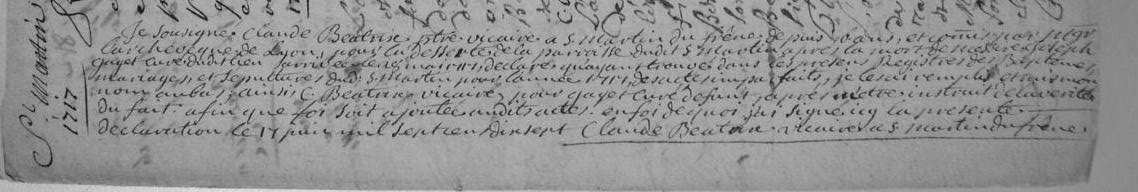 St Martin
1717
Je soussigné Claude Beatrix ptre vicaire a S martin du frêne depuis 10 ans, et comis par mgr
L'archevêque de Lyon, pour la desserte de la parroisse dudit S martin apres la mort de messire joseph
gayet curé dudit lieu arrivée le mai 1717, declare qu'ayant trouvé dans les presens Registres des Baptemes,
mariages, et sepultures dudit S martin pour l'année 1717 des actes imparfaits, je les ai remplis et mis mon
nom au bas: ainsi C. Beatrix vicaire, pour gayet curé defunt, apres m'etre instruit de la verité
du fait. afin que foi soit ajoutée auxdits actes. en foi de quoi j'ai signé icy la presente
declaration le 17 juin mil sept cens dix sept Claude Beatrix vicaire a S martin du frêne.